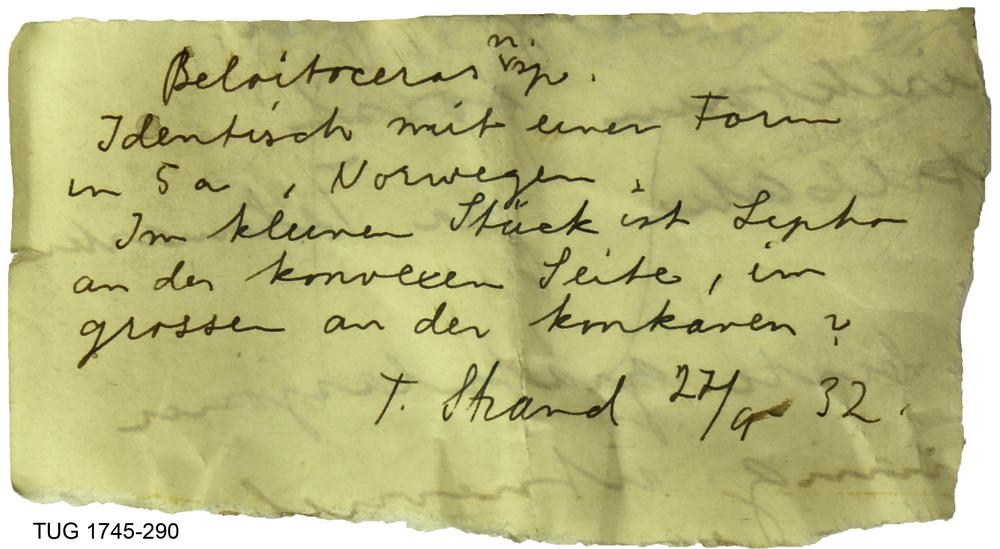 Beloitoceras n. sp.
Identisch mit einer Form
in 5a, Norwegen.
Im kleinen Stück ist Sipho
an der konvexen Seite, im
grossen an der konkaven?
T. Strand 27/9 32.
TUG 1745-290